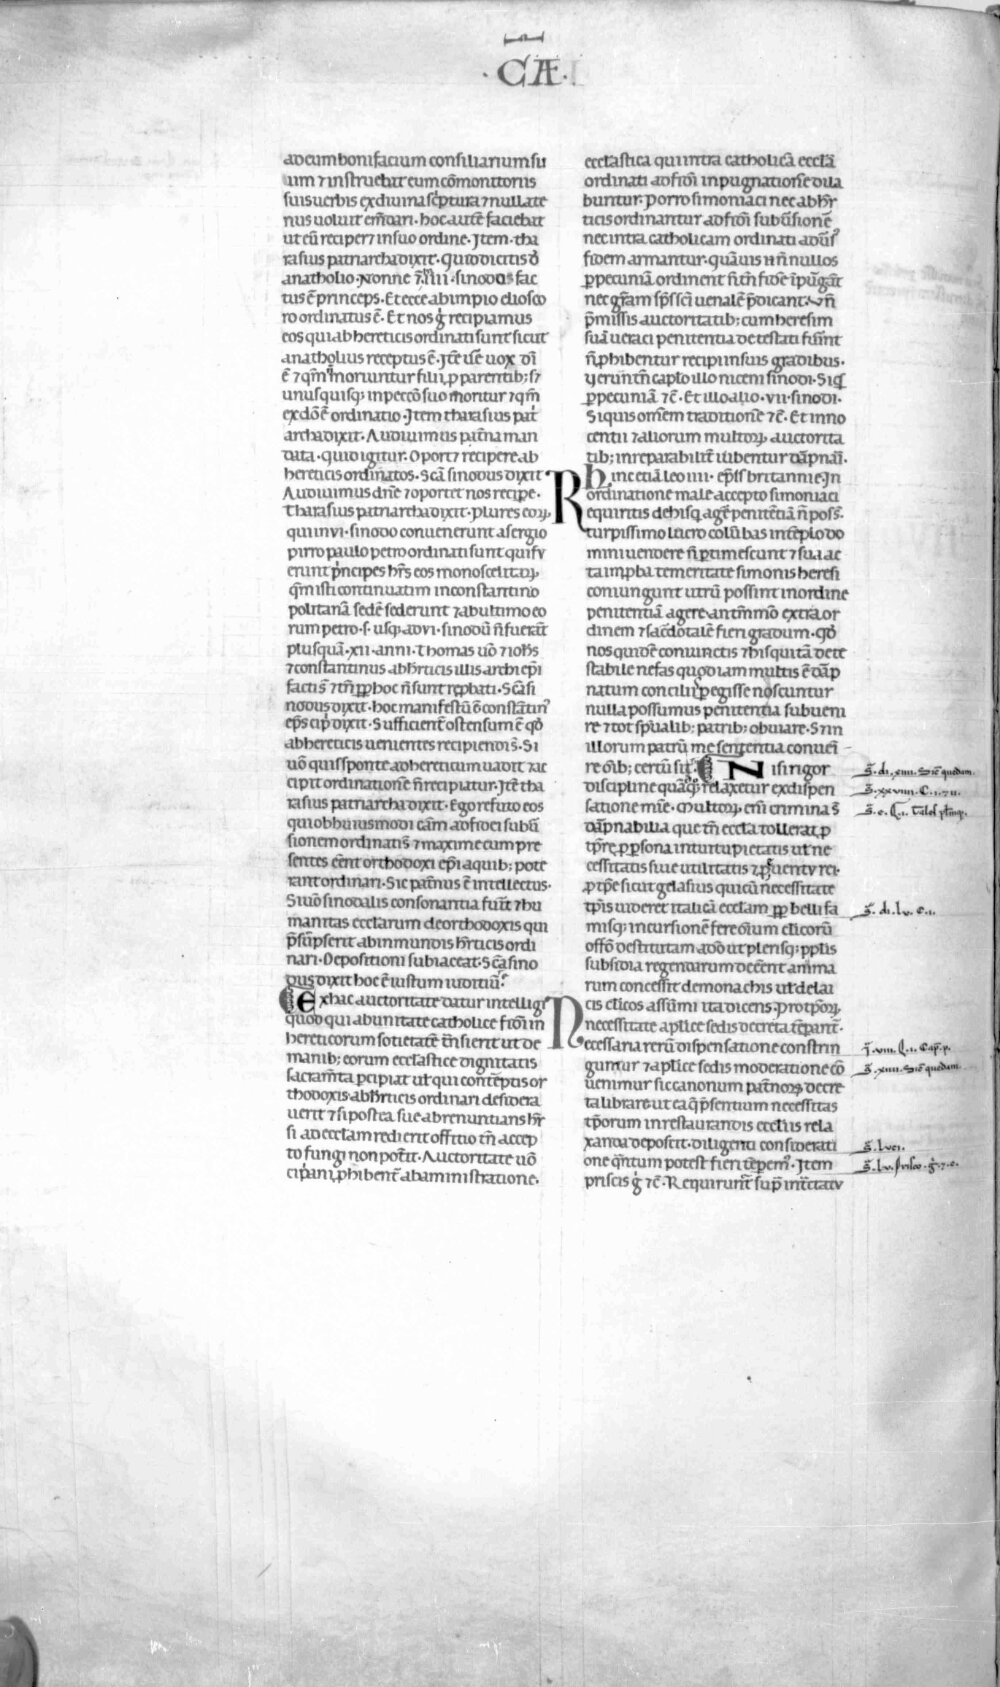 · CĀ ·
ad eum bonifacium consiliarium su
um ⁊ instruebat eum cōmonitoriis
suis uerbis ex diuina sc̄ptura ⁊ nullate
nus uoluit em̄dari. hoc autē faciebat
ut eū recipeꝛ in suo ordine. Item tha
rasius patriarcha dixit. quid dicitis đ
anatholio. Nonne ē .iiii. sinodi fac
tus ē princeps. Et ecce ab impio diosco
ro ordinatus ē. Et nos g̊ recipiamus
eos qui ab hereticis ordinati sunt sicut
anatholius receptus ē. Itē uē uox dī
ē ⁊ qm̄ moriuntur filii ꝓ parentib; sꝫ
unusquisq; in pecc̄o suo moritur ⁊ qm̄
ex dōē ordinatio. Item tharasius pat
archa dixit. Audiuimus pat̄na man
data. quid igitur. Oportꝫ recipere ab
hereticis ordinatos. Sc̄a sinodus dixit
Audiuimus dn̄e ⁊ oportet nos recipe.
tharasius patriarcha dixit. plures eoꝝ
qui in vi. sinodo conuenerunt a sergio
pirro paulo petro ordinati sunt qui fu
erunt p̄ncipes hr̄s eos monoscelitaꝝ
qm̄ isti continuatim in constantino
politanā sedē sederunt ⁊ ab ultimo eo
rum petro. s. usq; ad vi. sinodū n̄ fuer̄t
plusquā .xii. anni. thomas uō ⁊ ioħs
⁊ constantinus ab hr̄ticis illis archiepī
facti s̄ ⁊ tn̄ ꝓp hoc n̄ sunt rep̄bati. Sc̄a si
nodus dixit. hoc manifestū ē constātin'
ep̄s cip̄ dixit. Sufficient̄ ostensum ē qđ
ab hereticis uenientes recipiendi s̄. Si
uō quis sponte ad hereticum uadit ⁊ ac
cipit ordinationē n̄ recipiatur. Itē tha
rasius patriarcha dixit. Ego refuto eos
qui ob huiusmodi cām ad fidei subū
sionem ordinati s̄ ⁊ maxime cum pre
sentes eēnt orthodoxi epī a quib; pote
rant ordinari. Sic patr̄nus ē intellectus.
Si uō sinodalis consonantia fuīt ⁊ hu
manitas ecclarum de orthodoxis qui
p̄sūpserit ab inmundis hr̄ticis ordi
nari. Depositioni subiaceat. Sc̄a sino
dus dixit hoc ē iustum iuditiū.
Ex hac auctoritate datur intelligi
quod qui ab unitate catholice fidei in
hereticorum sotietatē t̄nsierit ut de
manib; eorum ecclastice dignitatis
sacram̄ta p̄cipiat ut qui contēptis or
thodoxis ab hr̄ticis ordinari desidera
uerit ⁊ si postea sue abrenuntians hr̄
si ad ecclam redierit offitio tn̄ accep
to fungi non pot̄it. Auctoritate uō
cip̄ani ꝓhibent̄ ab amministratione.
ecclastica qui intra catholicā ecclā
ordinati ad fidī inpugnatiōne dila
buntur. porro simoniaci nec ab hr̄
ticis ordinantur ad fidī subūsionē
nec intra catholicam ordinati adūs'
fidem armantur. quāuis .n. n̄ nullos
ꝓ pecuniā ordinent n̄ tn̄ fidē īpug̃nt
nec gr̃am sp̄s sc̄i uenalē p̄dicant.
p̄missis auctoritatib; cum heresim
suā ueraci penitentia detestati fuīnt
n̄ phibentur recipi in suis gradibus.
Uerum tn̄ cap̄lo illo niceni sinodi. Siq̄
ꝓ pecuniā ⁊ē. Et illo alio .vii. sinodi.
Siquis om̄em traditionē ⁊ē. Et inno
centii ⁊ aliorum multoꝝ auctorita
tib; inreparabilit̄ iubentur dāpnari.
hinc etiā leo iiii. ep̄iis britannie. In
Rordinatione male accepto simoniaci
requiritis debisq; agē penitētiā n̄ poss̄.
turpissimo lucro colūbas in tēplo do
mini uendere n̄ p̄timescunt ⁊ sua ac
ta improba temeritate simonis heresi
coniungunt utrū possint in ordine
penitentiā agere an tm̄mō extra or
dinem ⁊ sac̄dotalē fieri gradum. qđ
nos quidē coniunctis ⁊ bisquitā dete
stabile nefas quod iam multis ē dāp
natum conciliis pegisse noscuntur
nulla possumus penitentia subueni
re ⁊ tot sp̄ualib; patrib; obuiare. Sꝫ in
illorum patrū me sententia conueī
re oīb; certū sit. Nisi rigor
discipline quāq; relaxetur ex dispen
satione mīe. Multoꝝ enī crimina s̄
dāpnabilia que tn̄ eccla tollerat ꝓ
tp̄re ꝓ psona intuitu pietatis ut ne
cessitatis siue utilitatis ⁊ ꝓ uentu rei.
ꝓ tp̄e sicut gelasius quicū necessitate
tp̄is uideret italicā ecclam ꝓp belli fa
misq; incursionē fere oīum clicorū
offō destitutam adō ut plerisq; pplis
subsidia regendarum deeent anima
rum concessit de monachis ut de lai
cis clicos assūmi ita dicens. pro tp̄oꝝ
Necessitate ap̄lice sedis decreta tēpant̄.
Necessaria rerū dispensatione constrin
gimur ⁊ ap̄lice sedis moderatione cō
uenimur sic canonum pat̄noꝝ decre
ta librare ut ea q̄ p̄sentium necessitas
tp̄orum in restaurandis ecclīis rela
xanda deposcit. diligenti consideratī
one qn̄tum potest fieri tēpem'. Item
priscis g̊ ⁊ē. Requirunt̄ sup̄ in t̄ctatu
ꝫ. di. xiiii. Sic̄ quedam.
ꝫ. xxviiii. C. i. ⁊ ii.
ꝫ. di. lv. C. i.
ꝫ. xiiii. Sic̄ quedam.
ꝫ. lvi.